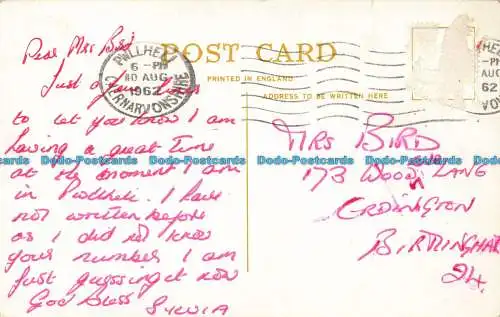 Dear Mrs Bird
POST CARD
PRINTED IN ENGLAND
ADDRESS TO BE WRITTEN HERE
PWLLHELI
6 - PM
10 AUG
1962
CAERNARVONSHIRE
Just a few lines
to let you know I am
having a great time
at the moment I am
in Pwllheli. I have
not written before
as I did not know
your number I am
just guessing it now
God Bless SYLVIA
MRS BIRD
173 WOOD LANE
ERDINGTON
BIRMINGHAM
24.
Dodo-Postcards Dodo-Postcards Dodo-Postcards Dodo-Postcards